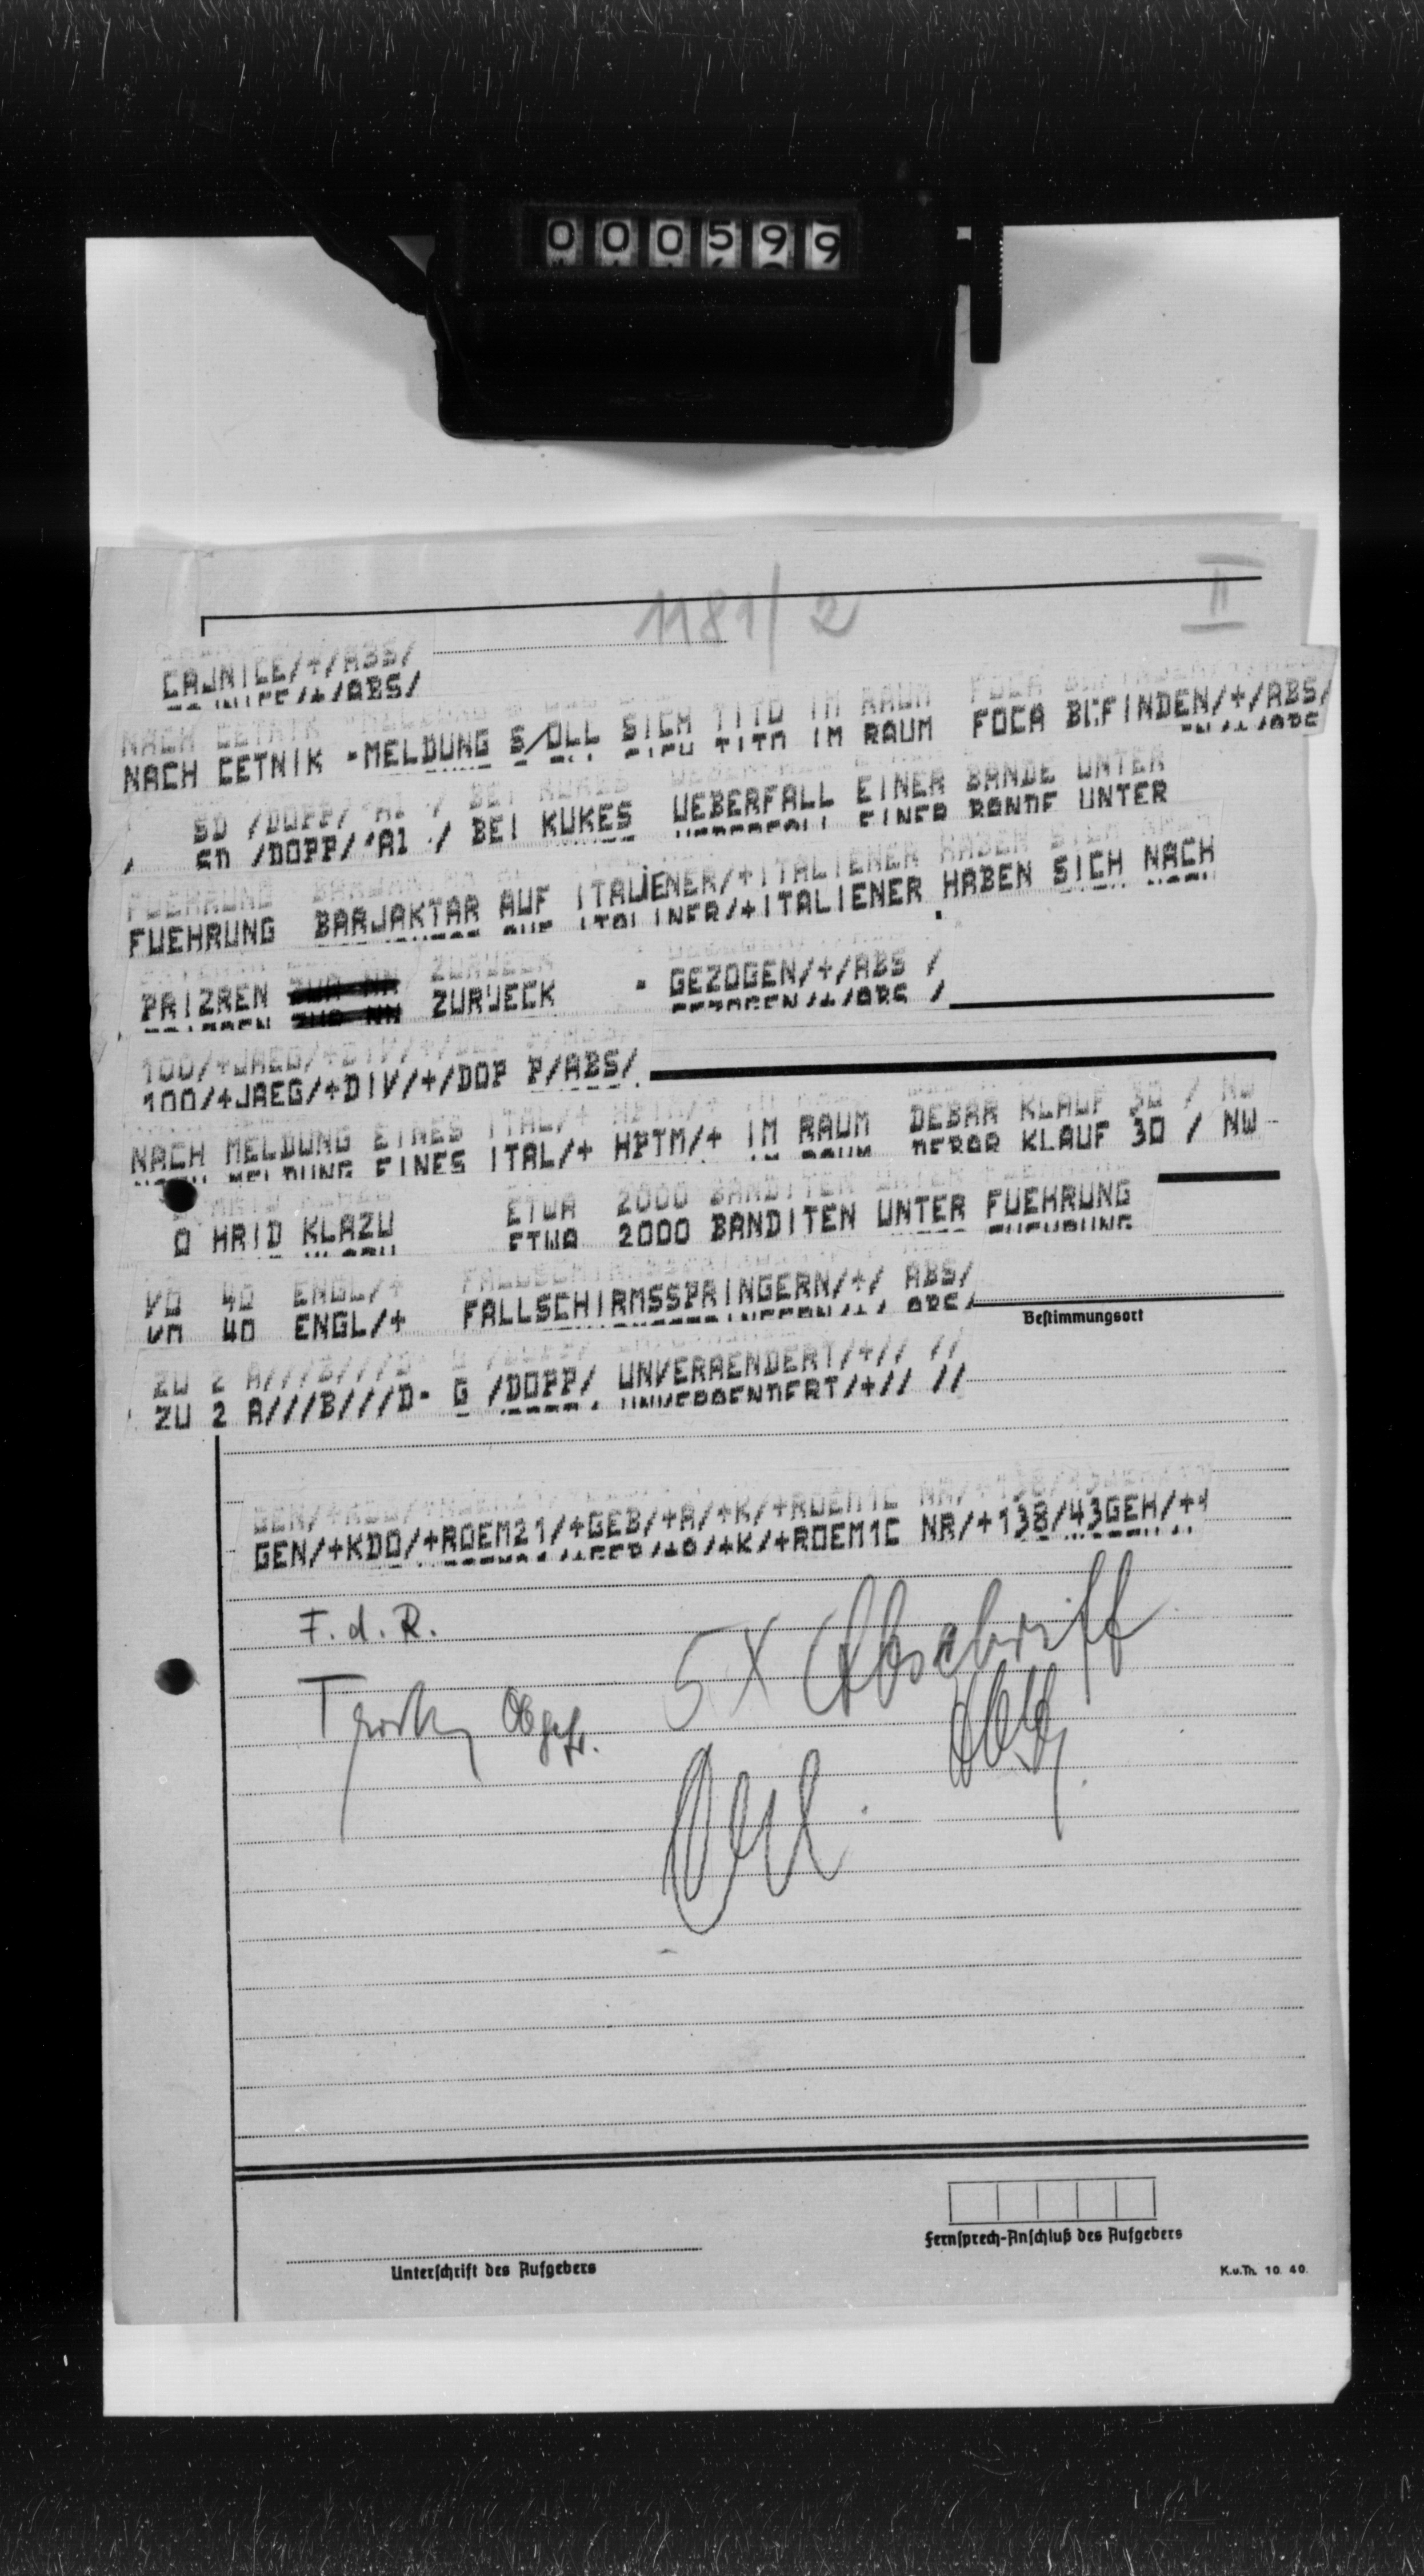 000599
1181/2
II
CAJNICE/+/ABS/
NACH CETNIK -MELDUNG S/OLL SICH TITO IM RAUM FOCA BEFINDEN/+/ABS/
/ SD /DOPP/ 'A1 / BEI KUKES UEBERFALL EINER BANDE UNTER
FUEHRUNG BARJAKTAR AUF ITALIENER/+ITALIENER HABEN SICH NACH
PRIZREN ZURUECK - GEZOGEN/+/ABS /
100/+JAEG/+DIV/+/DOP P/ABS/
NACH MELDUNG EINES ITAL/+ HPTM/+ IM RAUM DEBAR KLAUF 30 / NW -
O HRID KLAZU ETWA 2000 BANDITEN UNTER FUEHRUNG
VO 40 ENGL/+ FALLSCHIRMSSPRINGERN/+/ ABS/
Bestimmungsort
ZU 2 A///B///D- G /DOPP/ UNVERAENDERT/+// //
GEN/+KDO/+ROEM21/+GEB/+A/+K/+ROEM1C NR/+138/43GEH/++
F. d. R.
5 X Abschrift
Obgefr.
Fernsprech-Anschluß des Aufgebers
Unterschrift des Aufgebers
K.u.Th. 10. 40.